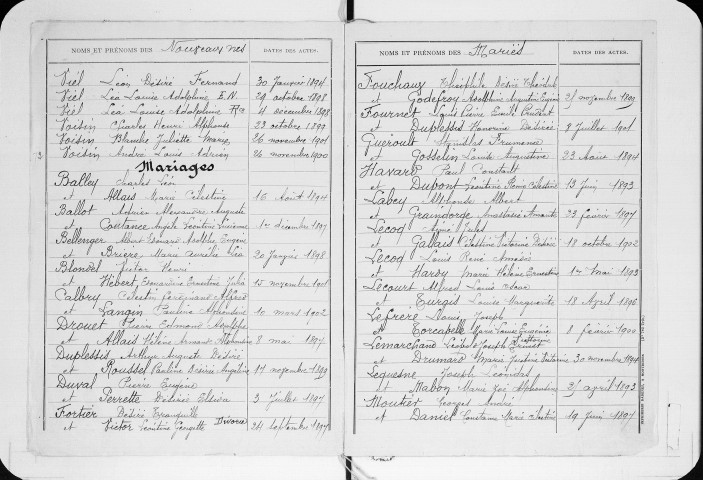 NOMS ET PRÉNOMS DES Nouveaux nés DATES DES ACTES.
Viel Léon Désiré Fernand 30 Janvier 1894
Viel Léa Louise Adolphine E.N. 29 octobre 1898
Viel Léa Louise Adolphine Rce 4 décembre 1898
Voisin Charles Henri Alphonse 23 octobre 1899
Voisin Blanche Juliette Marie 26 novembre 1901
Voisin André Louis Adrien 26 novembre 1900
Mariages
Balley Charles Léon
et Allais Marie Célestine 16 Août 1894
Ballot Adrien Alexandre Auguste
et Coutance Angèle Léontine Vivienne 1er décembre 1897
Bellenger Albert Edouard Adolphe Eugène
et Brière Marie Aurélie Léa 20 Janvier 1898
Blondel Victor Henri
et Hébert Ernestine Julia 15 novembre 1901
Calbry Célestin Ferdinand Alfred
et Langin Pauline Alphonsine 10 mars 1902
Drouet Pierre Edmond Adolphe
et Allais Hélène Armande 8 mai 1897
Duplessis Arthur Auguste Désiré
et Roussel Pauline Désirée Angeline 17 novembre 1899
Duval Pierre Eugène
et Perrette Désirée Elisa 3 Juillet 1897
Fortier Désiré Tranquille
et Victor Léontine Georgette Divorce 24 septembre 1897
NOMS ET PRÉNOMS DES Mariés DATES DES ACTES.
Fouchaux Théophile Désiré
et Godefroy Adolphine Augustine 25 novembre
Fournet Louis Pierre Emile Prudent
et Duplessis Honorine Désirée 9 Juillet 1901
Gueroult
et Gosselin Louise Augustine 23 Août 1894
Havard Paul Constant
et Dupont Léontine Célestine 13 Juin 1893
Labey Alphonse Albert
et Graindorge Anastasie Amanda 23 février 1897
Lecoq Aimé Jules
et Gallais Victorine Désirée 18 octobre 1902
Lecoq Louis René Amédée
et Hardy Marie Hélène Ernestine 14 Mai 1892
Lecourt Alfred Louis
et Turgis Louise Marguerite 18 Avril 1896
Lefrère Louis Joseph
et Torcapelle Marie Louise Eugénie 8 février 1900
Lemarchand Joseph Ernest
et Drumard Marie Victorine 30 novembre 1894
Leguesne Joseph Léonidas
et Mabon Marie Alphonsine 25 avril 1893
Moutier Georges André
et Daniel Constance Marie 19 Juin 1897